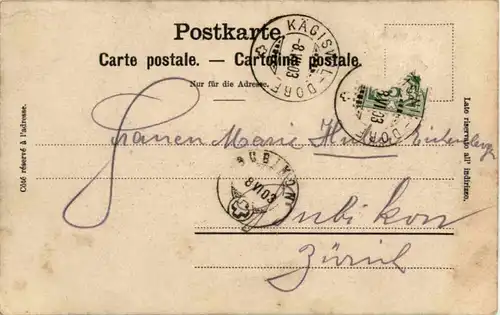 Postkarte.
Carte postale. — Cartolina postale.
Nur für die Adresse.
KÄGISWIL-DORF
8 VI 03
DORF
8 VI 03
Côté réservé à l'adresse.
Lato riservato all' indirizzo.
Frauen Marie
RUBIKON
8 VI 03
Rubikon
Zürich